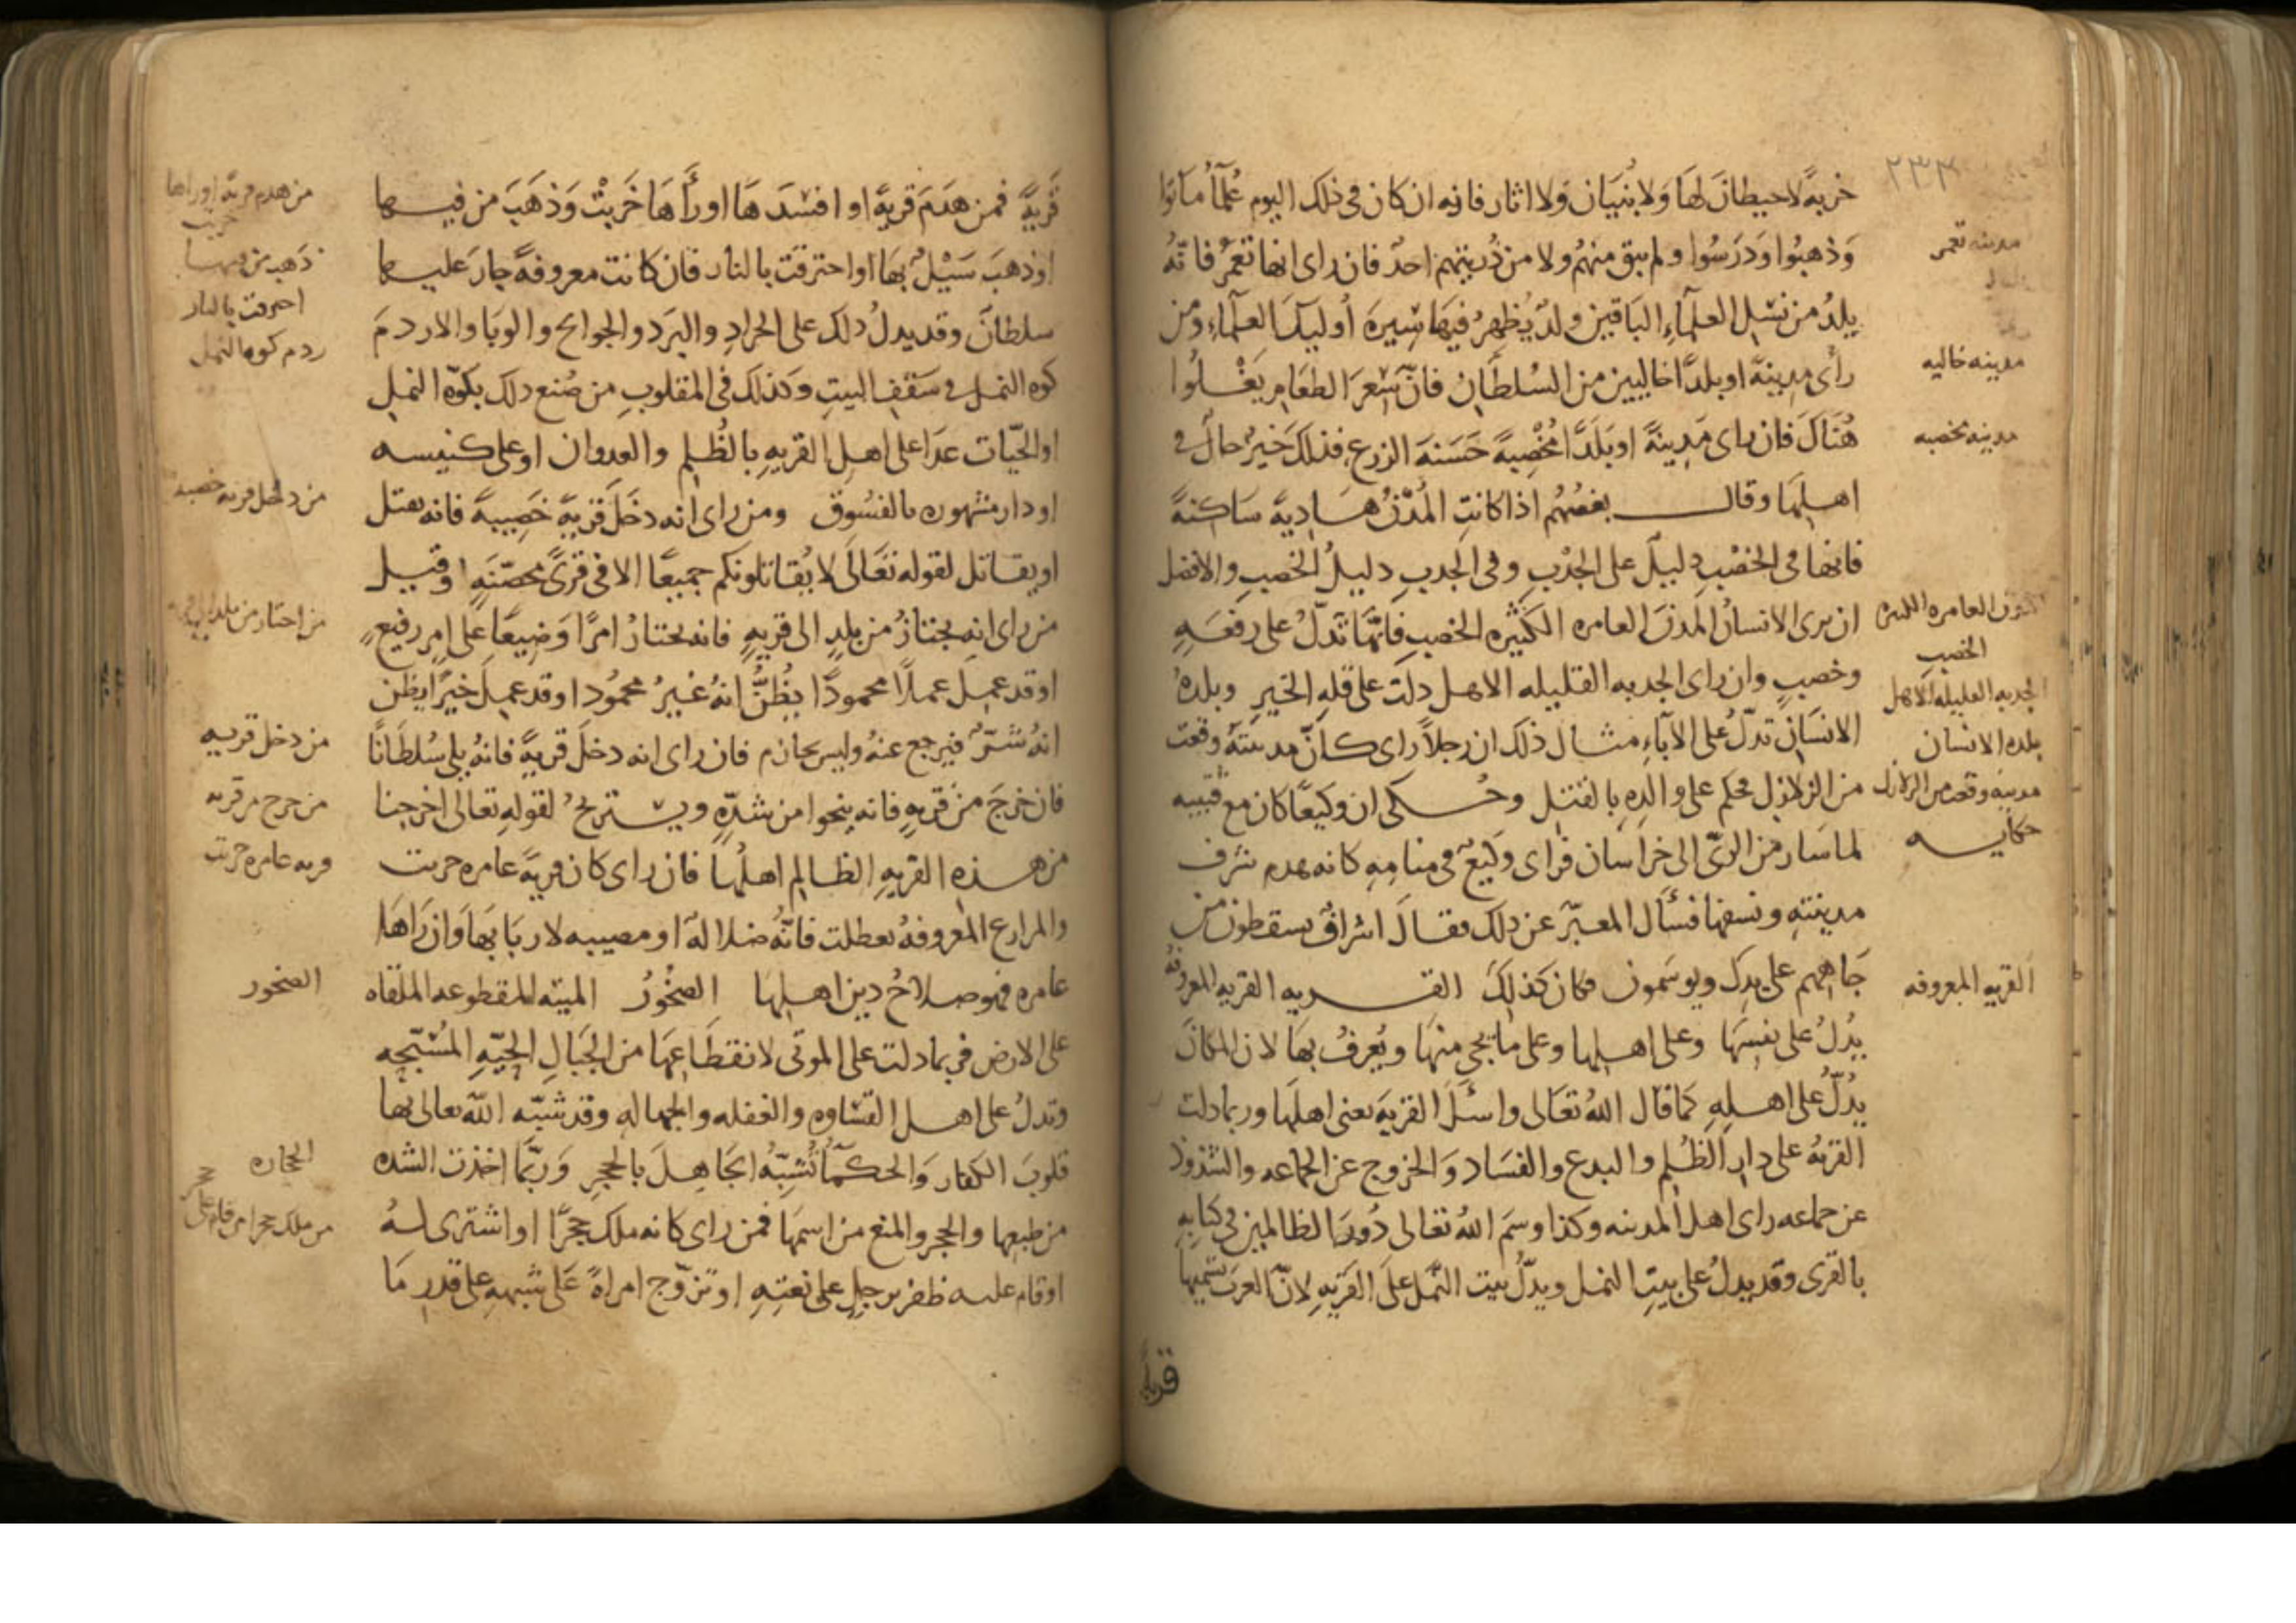 ٢٣٣
خربةً لا حيطانَ لها وَلا بُنيَان وَلا اثار فانه ان كان فى ذلك اليوم عُلمآءُ ماتوا
وَذهبُوا وَدَرَسُوا ولم يبق منهُم ولا من ذُريتهم احدٌ فان راى انها تعمرُ فانهُ
يلدُ من نسْل العلمآءِ البَاقين ولدٌ يُظهرُ فيهَا سِيرَة أوليكَ العلمآءِ ومن
رأى مدينةً او بلدًا خاليين من السُلطَان فانّ سِعرَ الطعَام يَغْلُوا
هُنَاكَ فان راى مَدِينةً او بَلَدًا مُخْصِبةً حَسَنة الزرع فذلك خَيرُ حال فى
اهلها وقال بعضهُم اذا كانتِ المُدُنُ هَادِيةً سَاكنةً
فانها فى الخصْبِ دليلٌ على الجَدْبِ وفى الجدبِ دليلُ الخصبِ والافضل
ان يرى الانسانُ المدنَ العامره الكثيره الخصبِ فانّها تَدلُّ على رفعَةٍ
وخصبٍ وان راى الجدبه القليله الاهل دلت على قلهِ الخيرِ وبلدهُ
الانسانِ تدلّ على الآباءِ مثال ذلك ان رجلاً راى كانّ مدينتَهُ وقعت
من الزلازل فحكم على والدِهِ بالقتل وحُكى ان وكيعًا كان مع قتيبه
لما سَار من الرىّ الى خراسان فراى وَكيعٌ فى منامهِ كانه هدم شرف
مدينتهِ ونسفها فسأل المعبّر عن ذلك فقال اشرافٌ يسقطون من
جَاههم على يدِك ويوسَمون فكان كذلك القريه القريه المعروفهُ
يدُلُ على نفسهَا وعلى اهلها وعلى ما يجى منهَا ويُعرفُ بهَا لان المكانَ
يدُلّ على اهلِهِ كما قال اللهُ تعَالى واسئَلِ القريَةَ يعنى اهلَها وربما دلت
القريةُ على دارِ الظُلم والبدع والفسَاد وَالخروج عن الجماعه والشذوذ
عن جماعه راى اهل المدينه وكذا وسَم اللهُ تعالى دُورَ الظالمين فى كتابهِ
بالقرى وقد يدلُ على بيتِ النمل ويدلّ بيت النمل على القريهِ لانّ العربَ تسميها
قريةً
مدينه تعمر
مدينه خاليه
مدينه مخصبه
المدن العامره الكثيره
الخصب
الجدبه القليله الاهل
بلدة الانسان
مدينه وقعت من الزلازل
حكايه
القريه المعروفه
قَريةً فمن هدَمَ قريةً او افسَدَهَا او رأَاهَا خَربتْ وَذهَبَ من فيها
او ذهبَ سَيْلٌ بهَا او احترقت بالنار فان كانت معروفةً جارَ عليها
سلطانٌ وقد يدلُ ذلك على الجرادِ والبَرَد والجوائح والوبا والا ردمَ
كوه النمل فى سَقفِ البيتِ وَكذلك فى المقلوبِ من صُنع ذلك بكوّة النملِ
او الحيّات عدَا على اهل القريهِ بالظُلم والعدوان او على كنيسه
او دار مشهوره بالفسُوق ومن راى انه دخَلَ قريةً خَصِيبةً فانه يقتل
او يقاتل لقوله تعَالَى لا يُقاتلونكم جميعًا الا فى قرىً محصّنَةٍ وقيل
من راى انه يجتازُ من بلدٍ الى قريهٍ فانه يختارُ امرًا وَضيعًا على امرٍ رفيعٍ
او قد عملَ عملاً محمودًا يظُنُّ انهُ غيرُ محمُود او قد عملَ خيرًا يظن
انهُ شرّ فيرجع عنهُ وليس بحازم فان راى انه دخلَ قريةً فانهُ يلى سُلطَانًا
فان خرجَ من قريهٍ فانه ينجوا من شدّةٍ ويستريحُ لقولهِ تعالى اخرجنا
من هذه القريهِ الظالم اهلُها فان راى كان قريةً عامره خربت
والمزارع المعروفهُ تعطلت فانّهُ ضلالهٌ او مصيبه لاربابهَا وَان رَاهَا
عامره فهو صلاحُ دين اهلهَا الصخُورُ الميته المقطوعه الملقاه
على الارض فربما دلت على الموتى لانقطَاعهَا من الجبَالِ الحيّهِ المُسبّحه
وتدلُ على اهل القسَاوه والغفله والجهاله وقد شبّه اللّه تعالى بها
قلوبَ الكفار وَالحكمآءُ تُشبّهُ الجَاهِلَ بالحجرِ وَربّما اخذت الشده
من طبعها والحجر والمنع من اسمهَا فمن راى كانه ملك حجرًا او اشترى لهُ
او قام عليه ظفر برجلٍ على نعتِهِ او تزوّج امراةً عَلى شبهه على قدر مَا
من هدم قرية او راها
خربت
ذهب من فيها
احترقت بالنار
ردم كوه النمل
من دخل قريه خصيبه
من دخل قريه
من خرج من قريه
قريه عامره خربت
الصخور
الحجاره